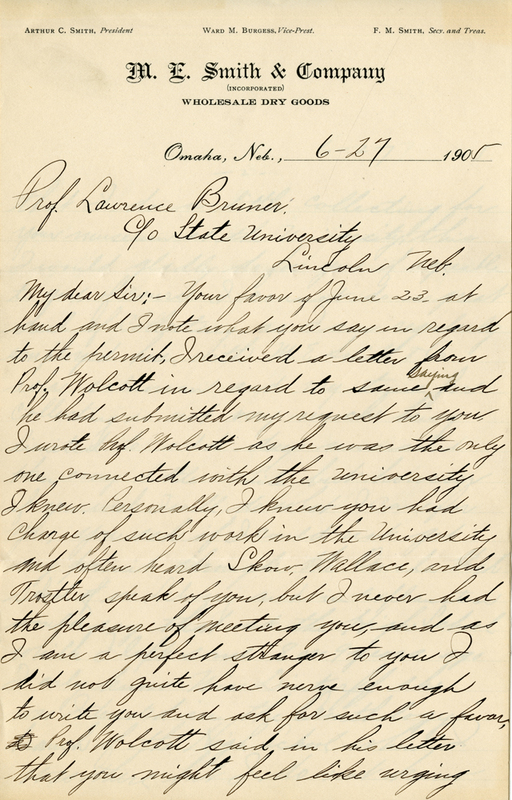 Arthur C. Smith, President Ward M. Burgess, Vice-Prest. F. M. Smith, Secr. and Treas.
M. E. Smith & Company
(INCORPORATED)
WHOLESALE DRY GOODS
Omaha, Neb., 6-27 1905
Prof. Lawrence Bruner.
C/o State University
Lincoln Neb.
My dear Sir:- Your favor of June 23 at
hand and I note what you say in regard
to the permit, I received a letter from
Prof. Wolcott in regard to same saying and
he had submitted my request to you
I wrote Prof. Wolcott as he was the only
one connected with the University
I knew. Personally, I knew you had
charge of such work in the University
and often heard Skow, Wallace, and
Trostler speak of you, but I never had
the pleasure of meeting you, and as
I am a perfect stranger to you I
did not quite have nerve enough
to write you and ask for such a favor,
Prof. Wolcott said in his letter
that you might feel like urging